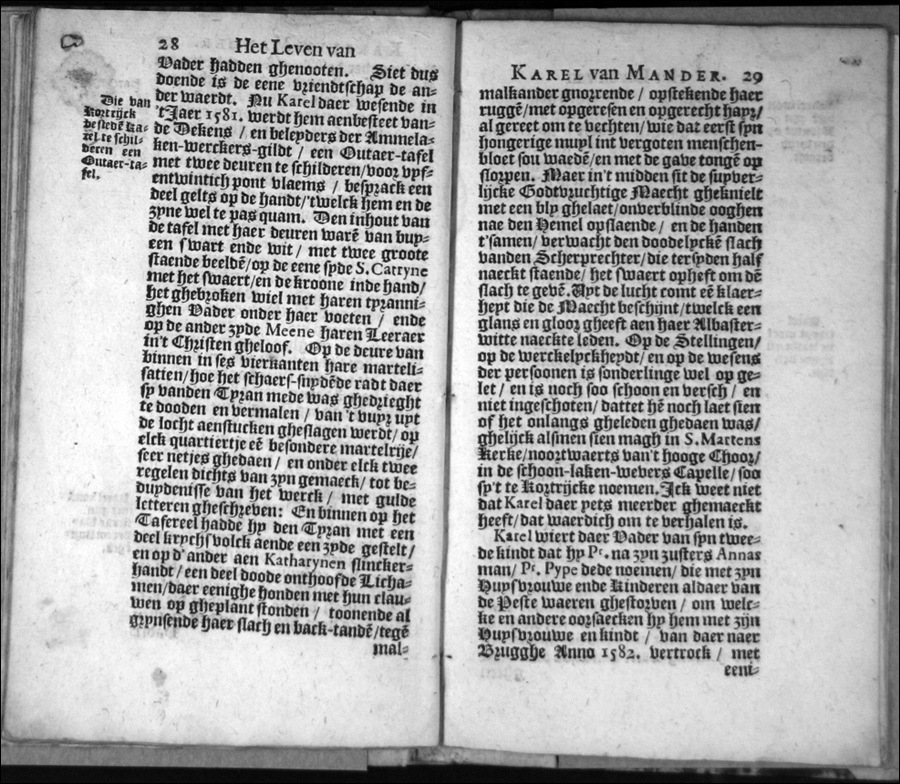 28 Het Leven van
Vader hadden ghenooten. Siet dus
doende is de eene vriendtschap de an-
der waerdt. Nu Karel daer wesende in
't Jaer 1581. werdt hem aenbesteet van-
de Dekens / en beleyders der Ammela-
ken-werckers-gildt / een Outaer-tafel
met twee deuren te schilderen / voor vyf-
entwintich pont vlaems / besprack een
deel gelts op de handt / 'twelck hem en de
zyne wel te pas quam. Den inhout van
de tafel met haer deuren warē van buy-
een swart ende wit / met twee groote
staende beeldē / op de eene syde S. Catryne
met het swaert / en de kroone inde hand /
het ghebroken wiel met haren tyranni-
ghen Vader onder haer voeten / ende
op de ander zyde Meene haren Leeraer
in't Christen gheloof. Op de deure van
binnen in ses vierkanten hare marteli-
satien / hoe het schaers-snydēde radt daer
sy vanden Tyran mede was ghedrieght
te dooden en vermalen / van 't vuyr uyt
de locht aenstucken gheslagen werdt / op
elck quartiertje eē besondere martelrije /
seer netjes ghedaen / en onder elck twee
regelen dichts van zyn gemaeck / tot be-
duydenisse van het werck / met gulde
letteren gheschreven: En binnen op het
Tafereel hadde hy den Tyran met een
deel krychsvolck aende een zyde gestelt /
en op d'ander aen Katharynen slincker-
handt / een deel doode onthoofde Licha-
men / daer eenighe honden met hun clau-
wen op gheplant stonden / toonende al
grynsende haer slach en back-tandē / tegē
mal-
Die van
Kortrijck
bestedē Ka-
rel te schil-
deren een
Outaer-ta-
fel.
KAREL van MANDER. 29
malkander gnorrende / opstekende haer
ruggē / met opgeresen en opgerecht hayr /
al gereet om te vechten / wie dat eerst syn
hongerige muyl int vergoten menschen-
bloet sou waedē / en met de gave tongē op
slorpen. Maer in't midden sit de suyver-
lijcke Godtvruchtige Maecht gheknielt
met een bly ghelaet / onverblinde ooghen
nae den Hemel opslaende / en de handen
t'samen / verwacht den doodelyckē slach
vanden Scherprechter / die tersyden half
naeckt staende / het swaert opheft om dē
slach te gevē. Uyt de lucht comt eē klaer-
heyt die de Maecht beschijnt / twelck een
glans en gloor gheeft aen haer Albaster-
witte naeckte leden. Op de Stellingen /
op de werckelyckheydt / en op de wesens
der persoonen is sonderlinge wel op ge-
let / en is noch soo schoon en versch / en
niet ingeschoten / dattet hē noch laet sien
of het onlangs gheleden ghedaen was /
ghelijck alsmen sien magh in S. Martens
Kerke / noortwaerts van't hooge Choor /
in de schoon-laken-wevers Capelle / soo
sy't te Kortrijcke noemen. Ick weet niet
dat Karel daer yets meerder ghemaeckt
heeft / dat waerdich om te verhalen is.
Karel wiert daer Vader van syn twee-
de kindt dat hy Pr. na zyn zusters Annas
man / Pr. Pype dede noemen / die met zyn
Huysvrouwe ende Kinderen aldaer van
de Peste waeren ghestorven / om welc-
ke en andere oorsaecken hy hem met zijn
Huysvrouwe en kindt / van daer naer
Brugghe Anno 1582. vertrock / met
eeni-